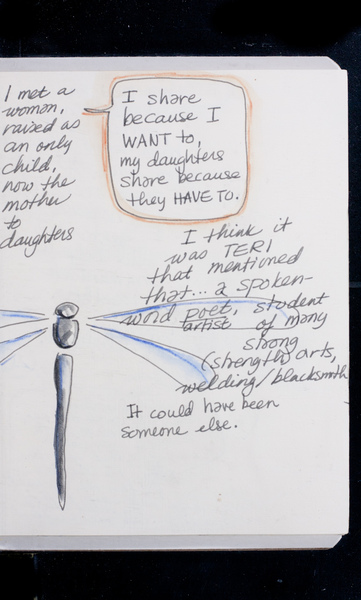 I met a
woman,
raised as
an only
child,
now the
mother
to
daughters
I share
because I
WANT to,
my daughters
share because
they HAVE TO.
I think it
was TERI
that mentioned
that... a spoken-
word poet, student
artist of many
strong
(strength) arts,
welding/blacksmith
It could have been
someone else.